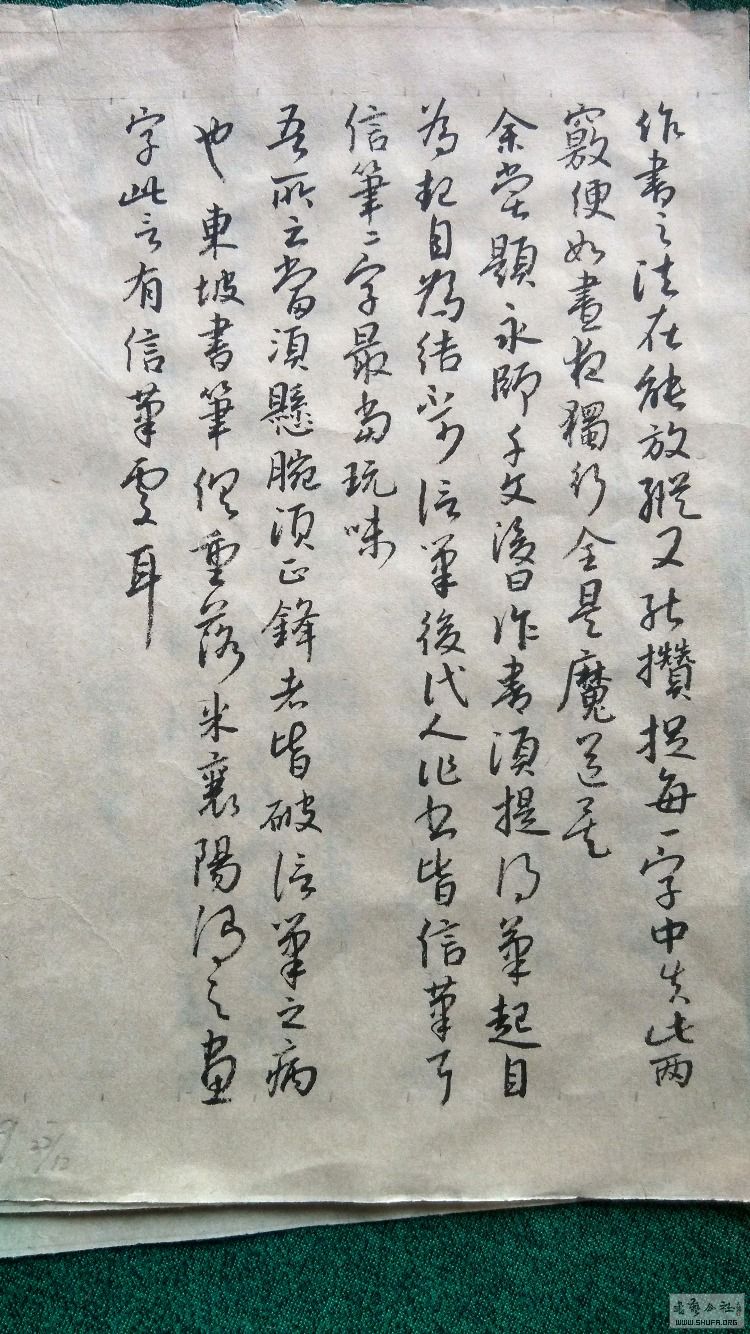 作書之法在能放縱又能攢捉每一字中失此兩
竅便如晝夜獨行全是魔道矣
余嘗題永師千文後曰作書須提得筆起自
為起自為結不可信筆後代人作書皆信筆耳
信筆二字最當玩味
吾所云當須懸腕須正鋒者皆破信筆之病
也東坡書筆俱重落米襄陽謂之畫
字此言有信筆處耳
27/12
書藝公社
WWW.SHUFA.ORG